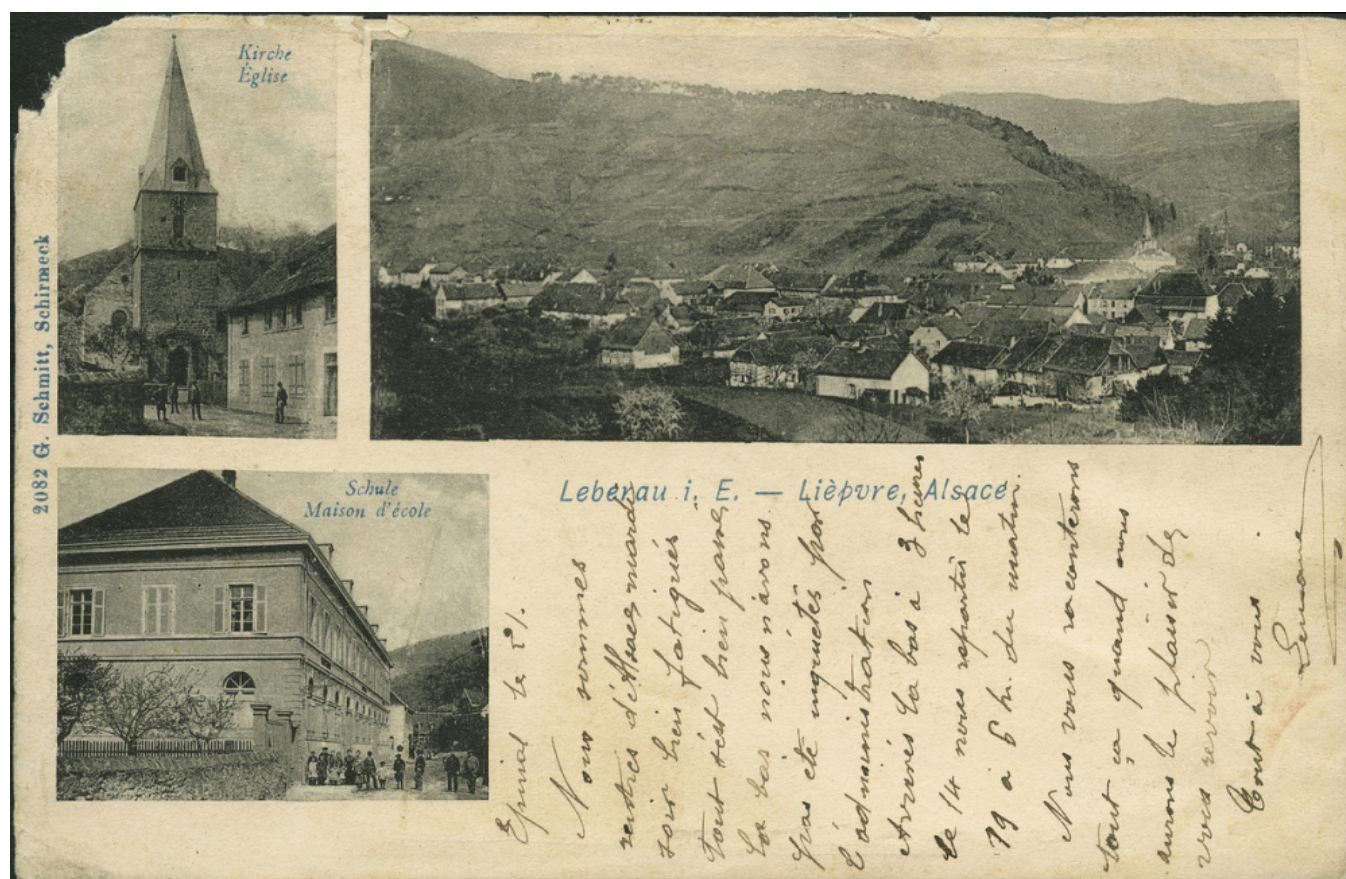 Kirche
Église
2082 G. Schmitt, Schirmeck
Schule
Maison d'école
Leberau i. E. — Lièpvre, Alsace
Epinal le 21.
Nous sommes
rentrés d'Alsace, mardi
soir bien fatigués
tout s'est bien passé,
la bas nous n'avons
pas été inquietés par
l'administration
Arrivés la bas à 3 heures
le 14 nous repartis le
19 à 6 h. du matin.
Nous vous raconterons
tout ça quand nous
aurons le plaisir de
vous revoir
Tout à vous.